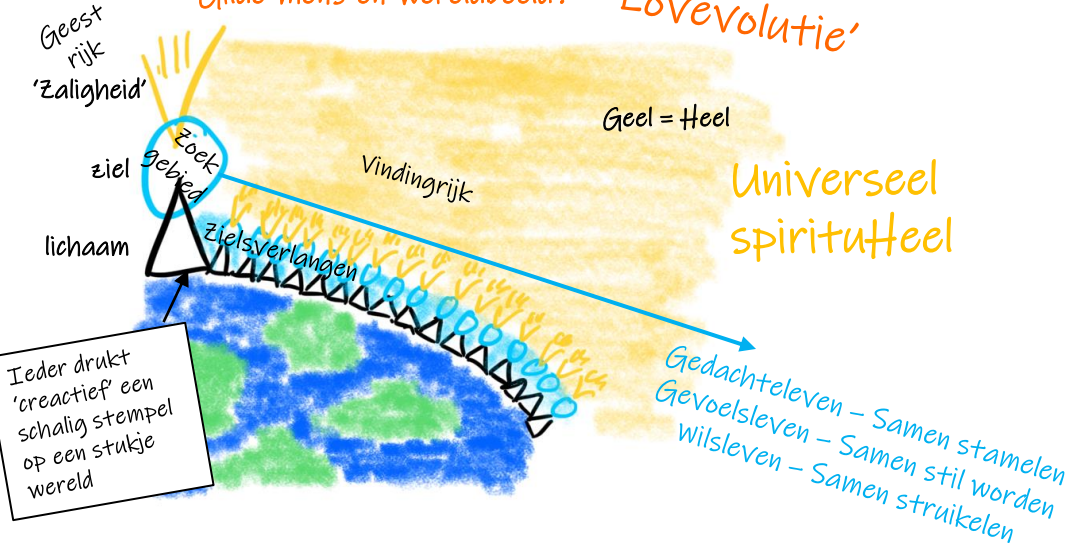 'Lovevolutie'
Geest
rijk
'Zaligheid'
Geel = Heel
Zoek
gebied
ziel
Vindingrijk
Universeel
spirituHeel
lichaam
Zielsverlangen
Ieder drukt
'creactief' een
schalig stempel
op een stukje
wereld
Gedachteleven – Samen stamelen
Gevoelsleven – Samen stil worden
Wilsleven – Samen struikelen